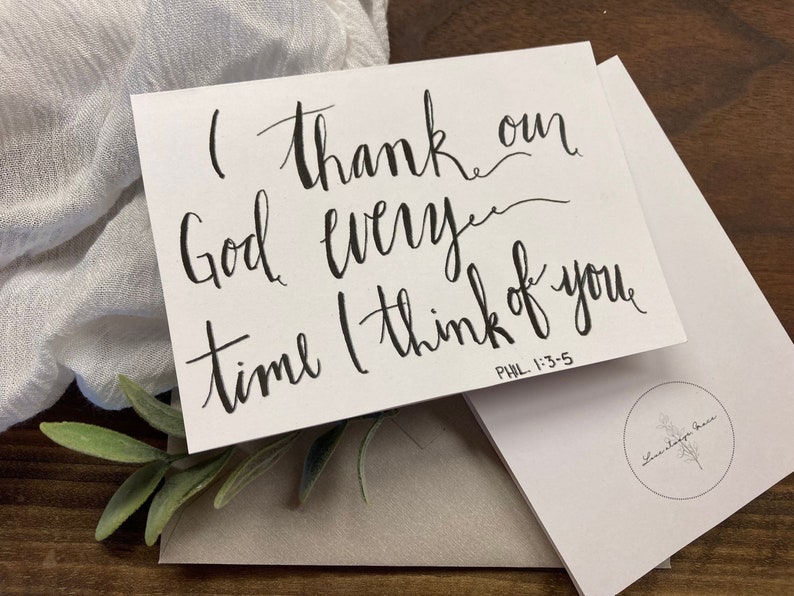 I thank our
God every
time I think of you
PHIL. 1:3-5
Love always Mace